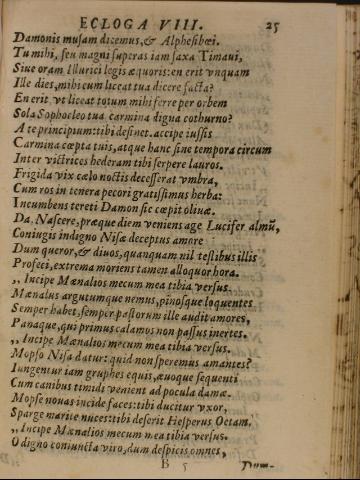 ECLOGA VIII. 25
Damonis musam dicemus, & Alphesibœi.
Tu mihi, seu magni superas iam saxa Timaui,
Siue oram Illurici legis æquoris: en erit vnquam
Ille dies, mihi cum liceat tua dicere facta?
En erit, vt liceat totum mihi ferre per orbem
Sola Sophocleo tua carmina digna cothurno?
A te principium: tibi desinet. accipe iussis
Carmina cœpta tuis, atque hanc sine tempora circum
Inter victrices hederam tibi serpere lauros.
Frigida vix cælo noctis decesserat vmbra,
Cum ros in tenera pecori gratissimus herba:
Incumbens tereti Damon sic cœpit oliuæ.
Da. Nascere, præque diem veniens age Lucifer almũ,
Coniugis indigno Nisæ deceptus amore
Dum queror, & diuos, quanquam nil testibus illis
Profeci, extrema moriens tamen alloquor hora.
,, Incipe Mænalios mecum mea tibia versus.
Mænalus argutumque nemus, pinosque loquentes
Semper habet, semper pastorum ille audit amores,
Panaque, qui primus calamos non passus inertes.
,, Incipe Mænalios mecum mea tibia versus.
Mopso Nisa datur: quid non speremus amantes?
Iungentur iam gryphes equis, æuoque sequenti
Cum canibus timidi venient ad pocula damæ.
Mopse nouas incide faces: tibi ducitur vxor,
Sparge marite nuces: tibi deserit Hesperus Oetam,
,, Incipe Mænalios mecum mea tibia versus.
O digno coniuncta viro, dum despicis omnes,
B 5 Dum-